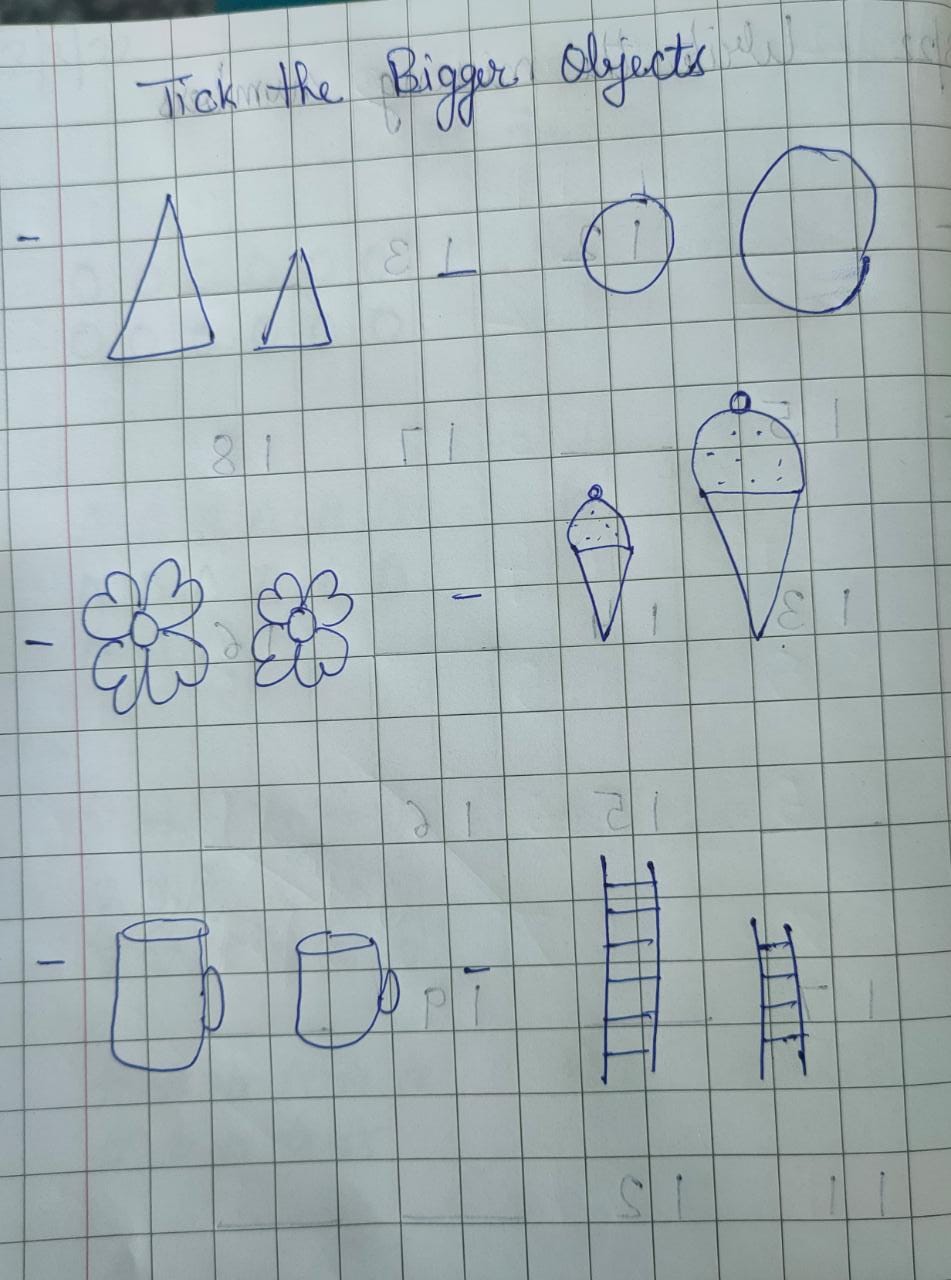 Tick the Bigger Objects